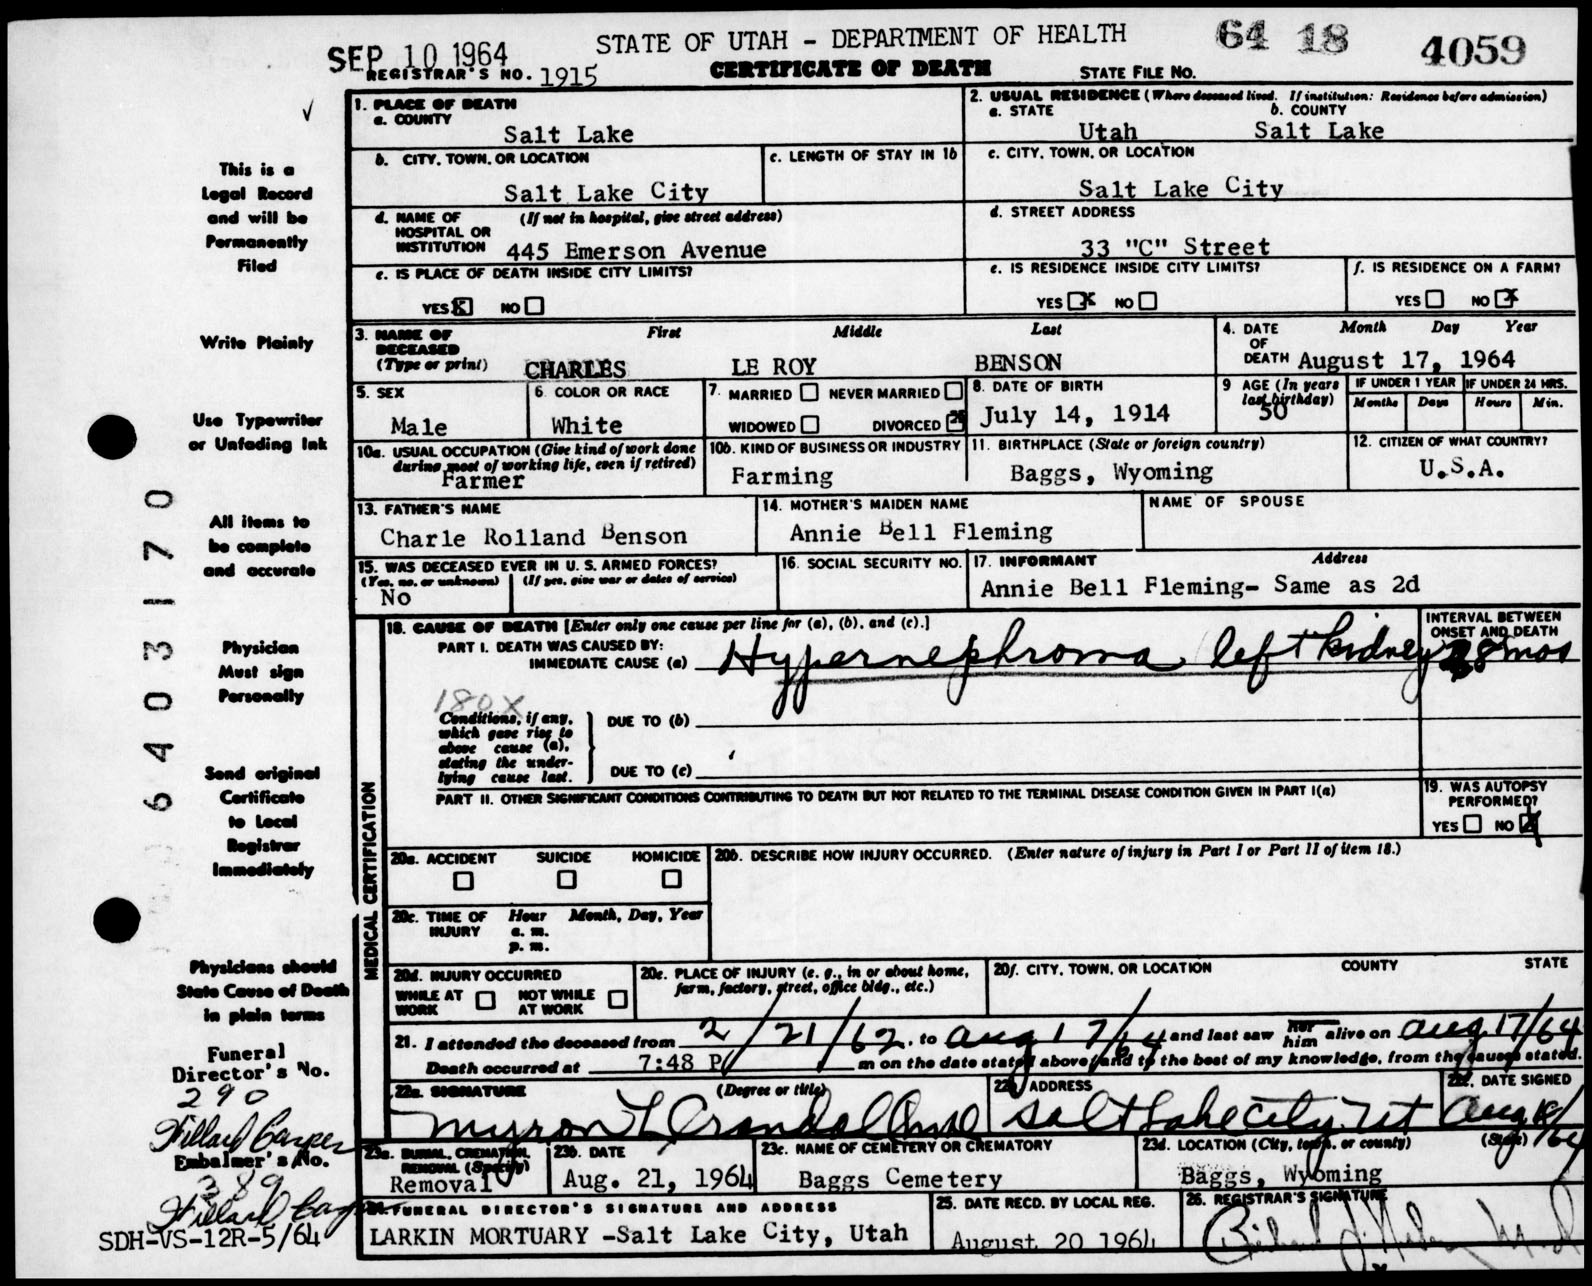 SEP 10 1964
STATE OF UTAH - DEPARTMENT OF HEALTH
64 18 4059
REGISTRAR'S NO. 1915
CERTIFICATE OF DEATH
STATE FILE NO.
1. PLACE OF DEATH
a. COUNTY
Salt Lake
2. USUAL RESIDENCE (Where deceased lived. If institution: Residence before admission)
a. STATE b. COUNTY
Utah Salt Lake
b. CITY, TOWN, OR LOCATION
Salt Lake City
c. LENGTH OF STAY IN 1b
c. CITY, TOWN, OR LOCATION
Salt Lake City
d. NAME OF (If not in hospital, give street address)
HOSPITAL OR
INSTITUTION 445 Emerson Avenue
d. STREET ADDRESS
33 "C" Street
e. IS PLACE OF DEATH INSIDE CITY LIMITS?
YES X NO
e. IS RESIDENCE INSIDE CITY LIMITS?
YES X NO
f. IS RESIDENCE ON A FARM?
YES NO X
3. NAME OF First Middle Last
DECEASED
(Type or print) CHARLES LE ROY BENSON
4. DATE Month Day Year
OF
DEATH August 17, 1964
5. SEX
Male
6. COLOR OR RACE
White
7. MARRIED NEVER MARRIED
WIDOWED DIVORCED
8. DATE OF BIRTH
July 14, 1914
9 AGE (In years
last birthday)
50
IF UNDER 1 YEAR IF UNDER 24 HRS.
Months Days Hours Min.
10a. USUAL OCCUPATION (Give kind of work done
during most of working life, even if retired)
Farmer
10b. KIND OF BUSINESS OR INDUSTRY
Farming
11. BIRTHPLACE (State or foreign country)
Baggs, Wyoming
12. CITIZEN OF WHAT COUNTRY?
U.S.A.
13. FATHER'S NAME
Charle Rolland Benson
14. MOTHER'S MAIDEN NAME
Annie Bell Fleming
NAME OF SPOUSE
15. WAS DECEASED EVER IN U. S. ARMED FORCES?
(Yes, no, or unknown) (If yes, give war or dates of service)
No
16. SOCIAL SECURITY NO.
17. INFORMANT Address
Annie Bell Fleming- Same as 2d
MEDICAL CERTIFICATION
18. CAUSE OF DEATH [Enter only one cause per line for (a), (b), and (c).]
PART I. DEATH WAS CAUSED BY:
IMMEDIATE CAUSE (a) Hypernephroma left kidney
INTERVAL BETWEEN
ONSET AND DEATH
38 mos
180X
Conditions, if any,
which gave rise to
above cause (a),
stating the under-
lying cause last.
DUE TO (b)
DUE TO (c)
PART II. OTHER SIGNIFICANT CONDITIONS CONTRIBUTING TO DEATH BUT NOT RELATED TO THE TERMINAL DISEASE CONDITION GIVEN IN PART I(a)
19. WAS AUTOPSY
PERFORMED?
YES NO X
20a. ACCIDENT SUICIDE HOMICIDE
20b. DESCRIBE HOW INJURY OCCURRED. (Enter nature of injury in Part I or Part II of item 18.)
20c. TIME OF Hour Month, Day, Year
INJURY a. m.
p. m.
20d. INJURY OCCURRED
WHILE AT NOT WHILE
WORK AT WORK
20e. PLACE OF INJURY (e. g., in or about home,
farm, factory, street, office bldg., etc.)
20f. CITY, TOWN, OR LOCATION COUNTY STATE
21. I attended the deceased from 2/21/62, to Aug 17/64 and last saw her him alive on Aug 17/64
Death occurred at 7:48 P m on the date stated above; and to the best of my knowledge, from the causes stated.
22a. SIGNATURE (Degree or title)
Myron L Crandall MD
22b. ADDRESS
Salt Lake City Ut
22c. DATE SIGNED
Aug 18/64
23a. BURIAL, CREMATION,
REMOVAL (Specify)
Removal
23b. DATE
Aug. 21, 1964
23c. NAME OF CEMETERY OR CREMATORY
Baggs Cemetery
23d. LOCATION (City, town, or county) (State)
Baggs, Wyoming
24. FUNERAL DIRECTOR'S SIGNATURE AND ADDRESS
LARKIN MORTUARY -Salt Lake City, Utah
25. DATE RECD. BY LOCAL REG.
August 20 1964
26. REGISTRAR'S SIGNATURE
This is a
Legal Record
and will be
Permanently
Filed
Write Plainly
Use Typewriter
or Unfading Ink
All items to
be complete
and accurate
Physician
Must sign
Personally
Send original
Certificate
to Local
Registrar
Immediately
Physicians should
State Cause of Death
in plain terms
Funeral
Director's No.
290
Embalmer's No.
389
SDH-VS-12R-5/64
6403170